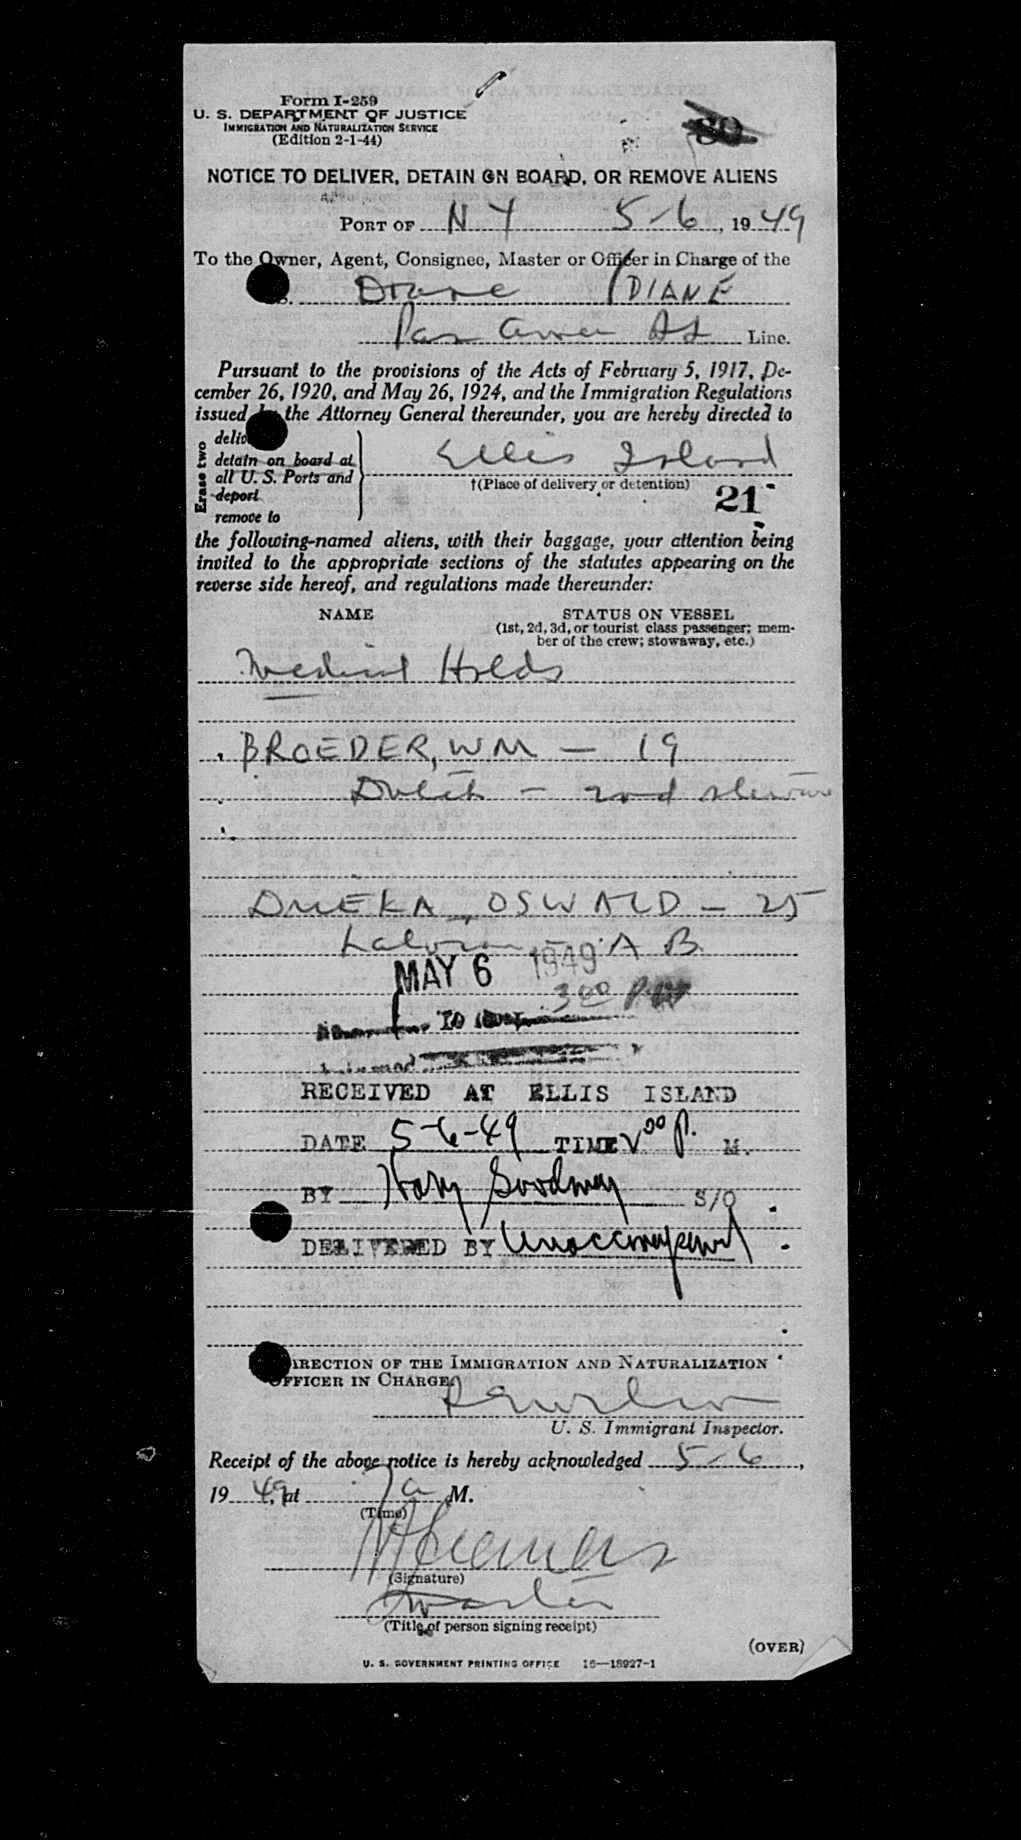 Form I-259
U. S. DEPARTMENT OF JUSTICE
IMMIGRATION AND NATURALIZATION SERVICE
(Edition 2-1-44)
NOTICE TO DELIVER, DETAIN ON BOARD, OR REMOVE ALIENS
PORT OF N Y 5-6, 1949
To the Owner, Agent, Consignee, Master or Officer in Charge of the
Diane DIANE
Pan Amer Line.
Pursuant to the provisions of the Acts of February 5, 1917, De-
cember 26, 1920, and May 26, 1924, and the Immigration Regulations
issued by the Attorney General thereunder, you are hereby directed to
Erase two
deliv
detain on board at
all U. S. Ports and
deport
remove to
Ellis Island
†(Place of delivery or detention)
21
the following-named aliens, with their baggage, your attention being
invited to the appropriate sections of the statutes appearing on the
reverse side hereof, and regulations made thereunder:
NAME STATUS ON VESSEL
(1st, 2d, 3d, or tourist class passenger; mem-
ber of the crew; stowaway, etc.)
Medical Holds
BROEDER, WM — 19
Dutch — 2nd
OSWALD — 25
A B
MAY 6 1949
3 00 PM
RECEIVED AT ELLIS ISLAND
DATE 5-6-49 TIME 00 P. M.
BY S/O
DELIVERED BY Unaccompanied
DIRECTION OF THE IMMIGRATION AND NATURALIZATION
OFFICER IN CHARGE
U. S. Immigrant Inspector.
Receipt of the above notice is hereby acknowledged 5-6,
1949, at 7 a M.
(Time)
(Signature)
Master
(Title of person signing receipt)
(OVER)
U. S. GOVERNMENT PRINTING OFFICE 16—18927-1